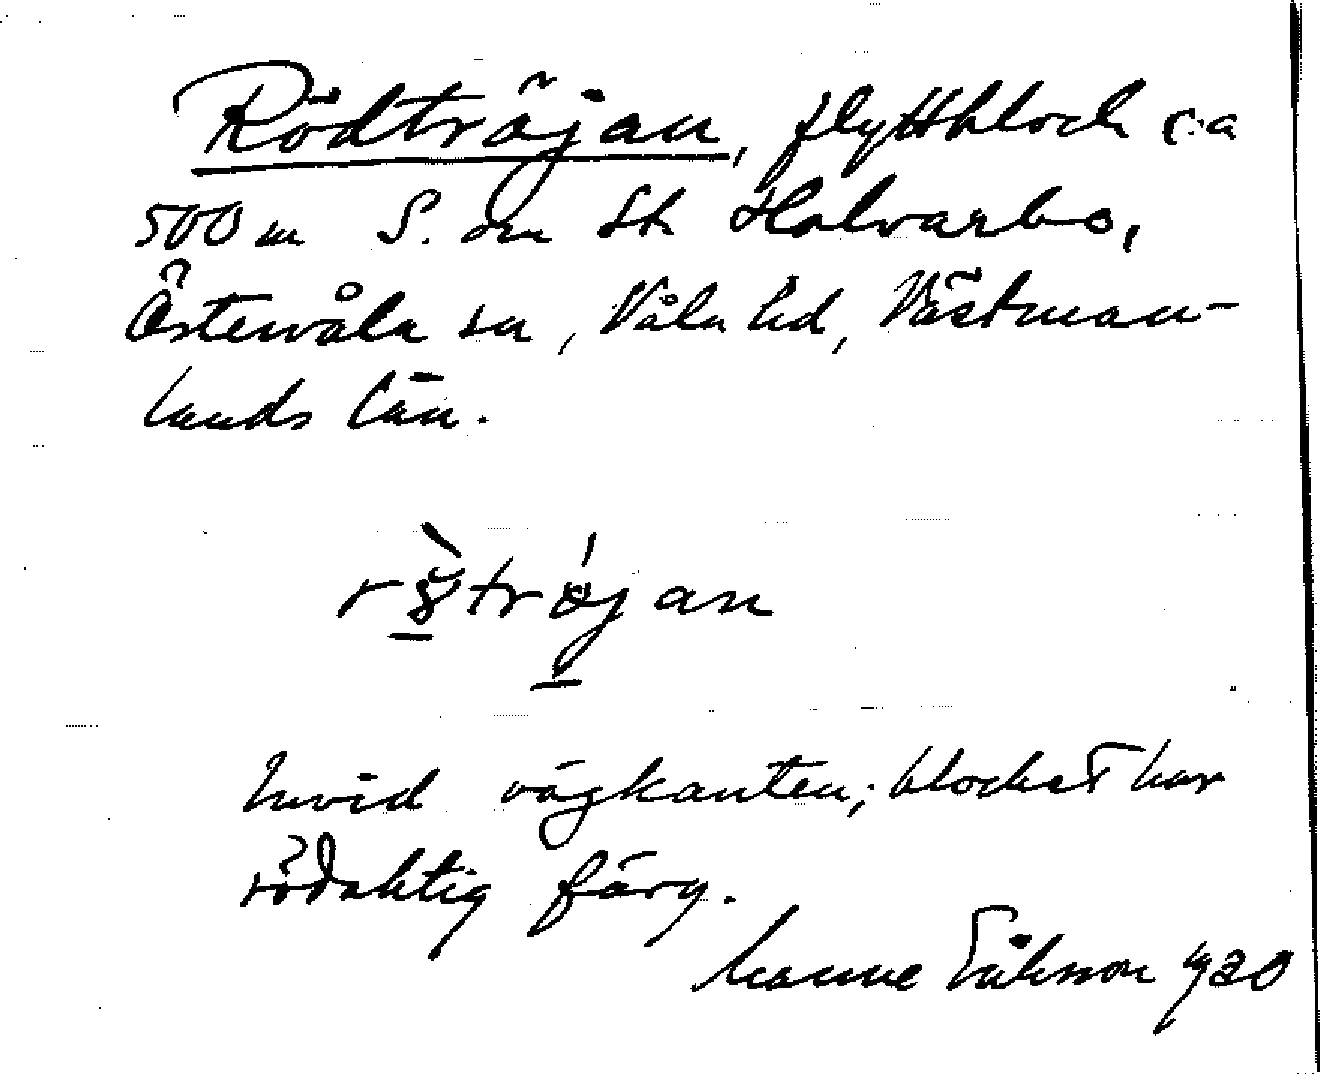 Rödtröjan, flyttblock c:a
500 m S. om St Halvarbo,
Östervåla sn, Våla hd, Västman-
lands län.
rö̀tröjan
Invid vägkanten; blocket har
rödaktig färg.
Manne Eriksson 1930